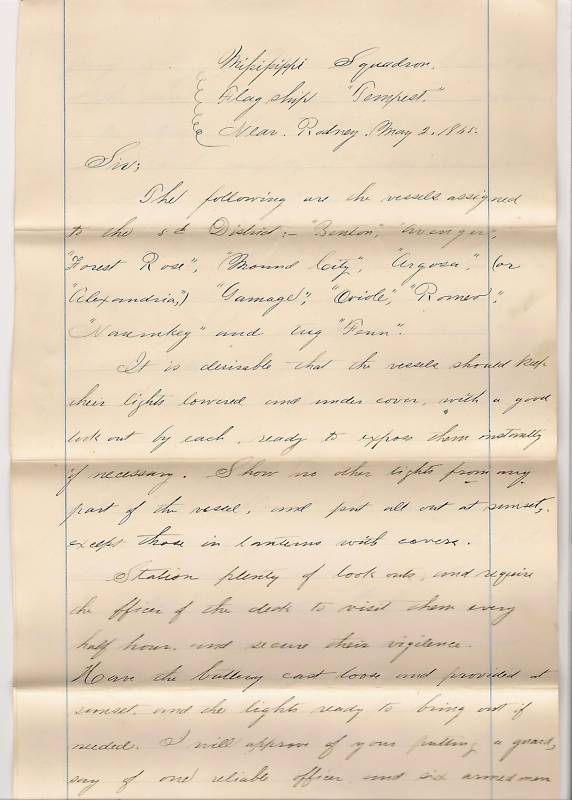 Missisippi Squadron.
Flag ship "Tempest."
Near. Rodney. May 2. 1865.
Sir;
The following are the vessels assigned
to the 5th District:- "Benton", "Avenger",
"Forest Rose", "Mound City", "Argosa," (or
"Alexandria,") "Gamage", "Oriole", "Romeo",
and tug "Fenn".
It is desirable that the vessels should keep
their lights lowered and under cover, with a good
look out by each, ready to expose them instantly
if necessary. Show no other lights from any
part of the vessel, and put all out at sunset,
except those in lanterns with covers.
Station plenty of look outs, and require
the officer of the deck to visit them every
half hour, and secure their vigilence.
Have the battery cast loose and provided at
sunset, and the lights ready to bring out if
needed. I will approve of your putting a guard,
say of one reliable officer and six armed men